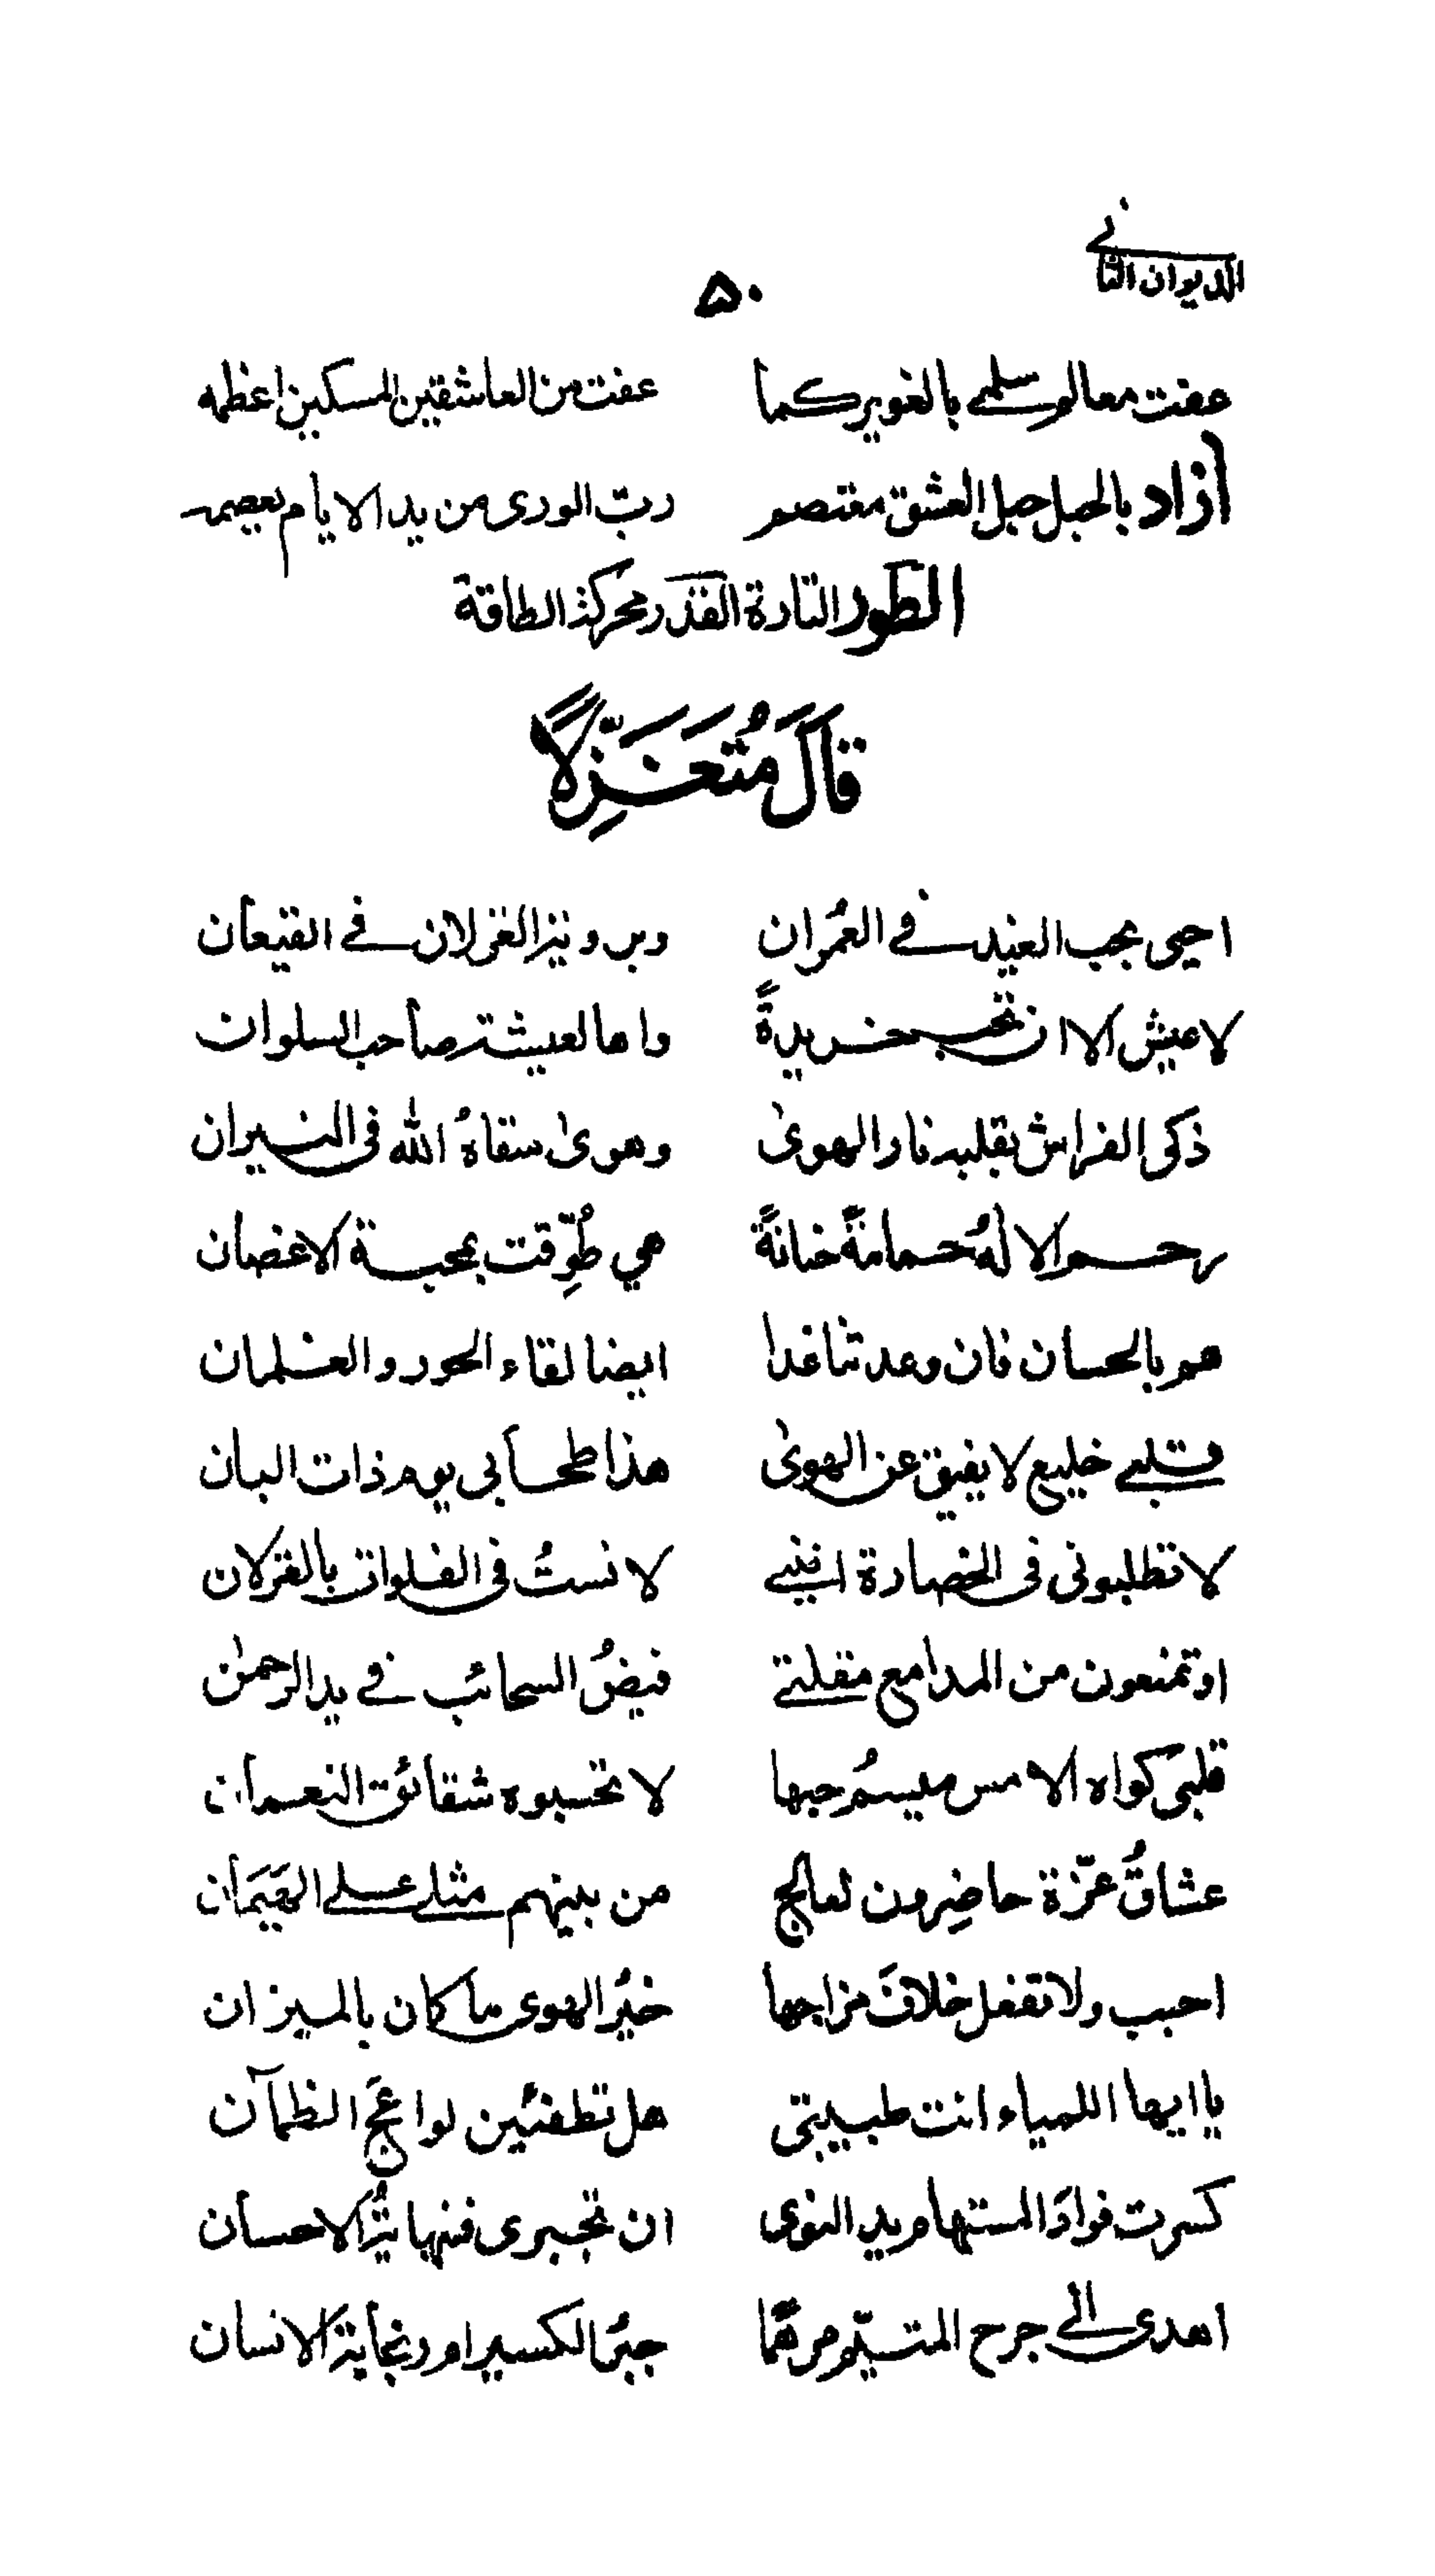 الديوان الثاني
۵۰
عفت معالم سلمى بالغوير كما عفت من العاشقين المسكين اعظمه
آزاد بالحبل حبل العشق معتصم ربّ الورى من يد الايام يعصمه
الطور التارة القدر محركة الطاقة
قَالَ مُتَغَزِّلًا
احيى بحب الغيد في العُمران وبرونيز الغزلان في القيعان
لا عيش الا ان تحب خريدةً واها لعيشة صاحب السلوان
ذَكى الفراش بقلبه نار الهوىٰ وهوىٰ سقاهُ الله فى النيران
رحم الالهُ حمامةً حنانةً هي طُوِّقت بمحبة الاغصان
هم بالحسان فان وعدتنا غدا ايضا لقاء الحور والغلمان
قلبي خليع لا يفيق عن الهوىٰ هذا طحا بى يوم ذات البان
لا تطلبونى فى الحضارة اننى لانستُ فى الفلوات بالغزلان
اوتمنعون من المدامع مقلتي فيضُ السحائب في يد الرحمٰن
قلبى كواه الامس ميسمُ حبها لا تحسبوه شقائق النعمان
عشاقُ عزّة حاضِرون لعالج من بينهم مثلي على الهَيَمان
احبب ولا تفعل خلافَ مزاجها خيرُ الهوى ما كان بالميزان
يا ايها اللمياء انت طبيبتى هل تطفئين لواعجَ الظمآن
كسرت فوادَ المستهام يد النوى ان تجبرى فنهايةُ الاحسان
اهدى الى جرح المتيّم مرهمًا جبرُ الكسير امور نجابة الانسان